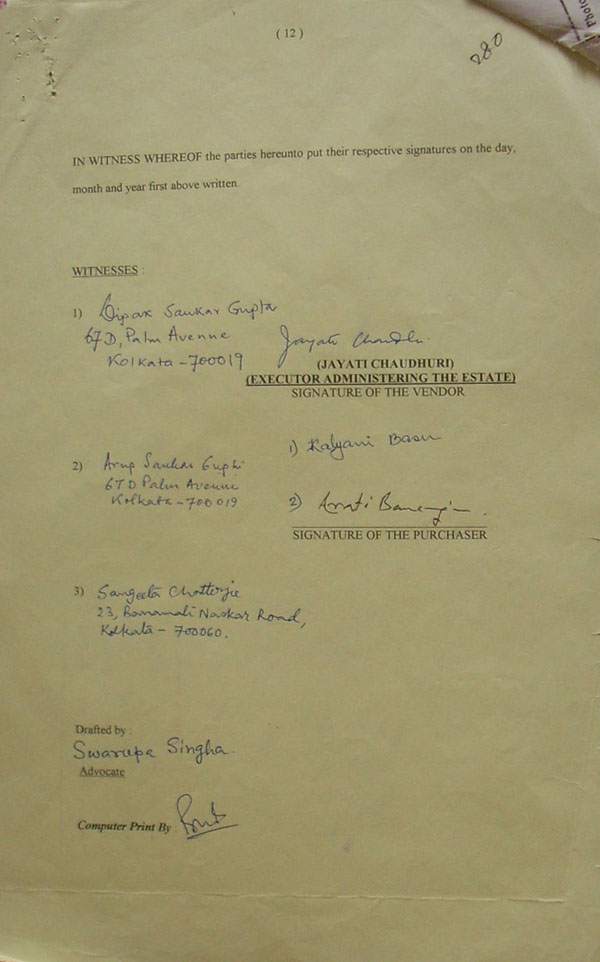 ( 12 )
280
Photo
IN WITNESS WHEREOF the parties hereunto put their respective signatures on the day,
month and year first above written.
WITNESSES :
1) Dipak Sankar Gupta
67D, Palm Avenue
Kolkata - 700019
Jayati Chaudhuri
(JAYATI CHAUDHURI)
(EXECUTOR ADMINISTERING THE ESTATE)
SIGNATURE OF THE VENDOR
2) Arup Sankar Gupta
67D Palm Avenue
Kolkata - 700019
1) Kalyani Basu
2) Arati Banerjee
SIGNATURE OF THE PURCHASER
3) Sangeeta Chatterjee
23, Banamali Naskar Road,
Kolkata - 700060.
Drafted by :
Swarupa Singha.
Advocate
Computer Print By :